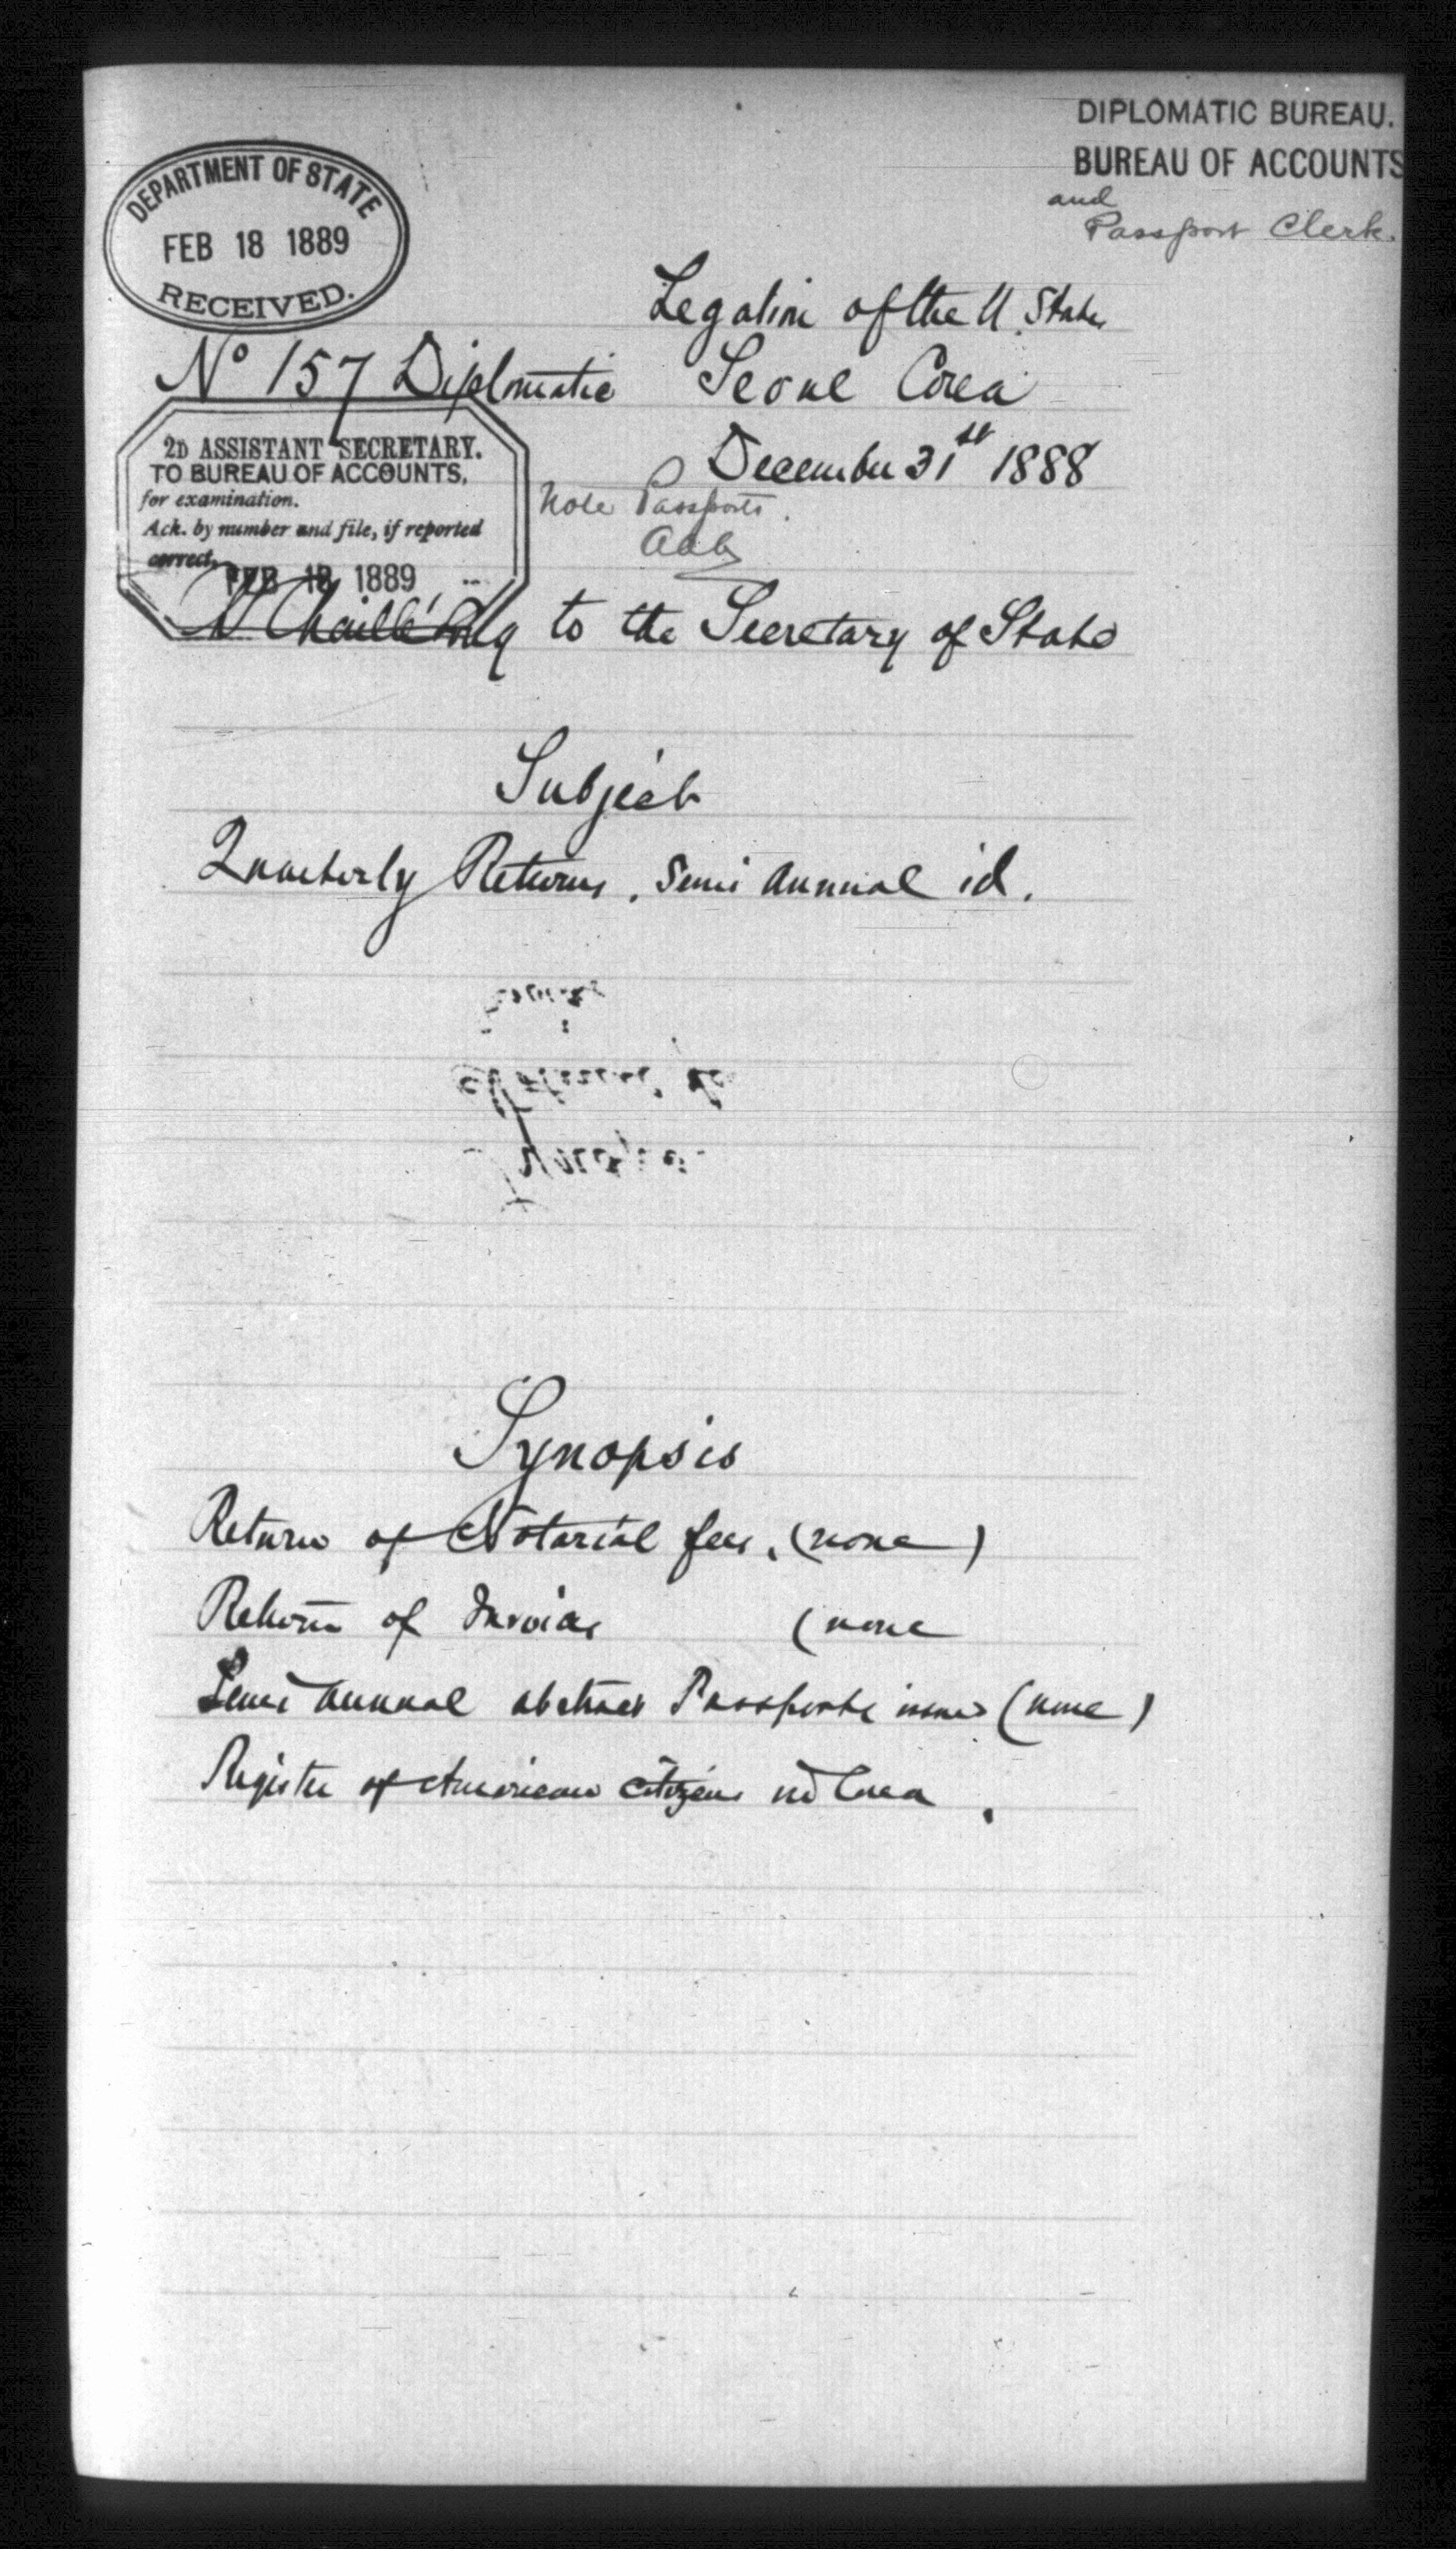 DIPLOMATIC BUREAU.
BUREAU OF ACCOUNTS
and
Passport Clerk.
DEPARTMENT OF STATE
FEB 18 1889
RECEIVED.
Legation of the U. States
No 157 Diplomatic Seoul Corea
December 31st 1888
2D ASSISTANT SECRETARY.
TO BUREAU OF ACCOUNTS,
for examination.
Ack. by number and file, if reported
correct.
FEB 18 1889
Note Passports.
Chaillé Long to the Secretary of State
Subject
Quarterly Returns. Semi Annual id.
Synopsis
Return of Notarial fees. (none)
Return of Invoices (none
Semi Annual abstract Passports issued (none)
Register of American citizens in Corea.